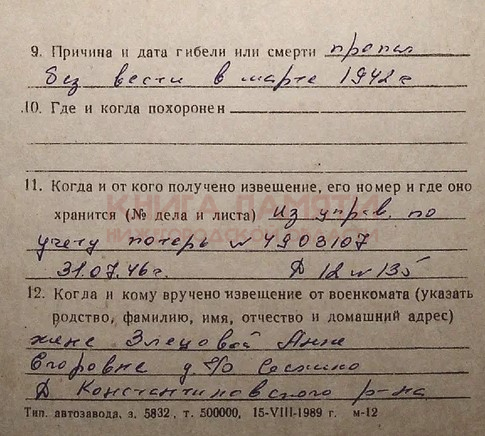 9. Причина и дата гибели или смерти пропал
без вести в марте 1942 г
10. Где и когда похоронен
11. Когда и от кого получено извещение, его номер и где оно
хранится (№ дела и листа) Из управ. по
учету потерь № 4903107
31.07.46 г. Д 12 № 135
12. Когда и кому вручено извещение от военкомата (указать
родство, фамилию, имя, отчество и домашний адрес)
жене Злецовой Анне
Егоровне д.
Д Константиновского р-на
Тип. автозавода, з. 5832, т. 500000, 15-VIII-1989 г. м-12
КНИГА ПАМЯТИ
НИЖЕГОРОДСКОЙ